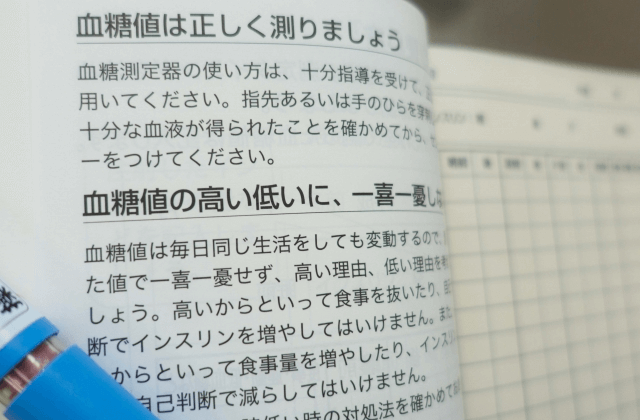 血糖値は正しく測りましょう
血糖測定器の使い方は、十分指導を受けて、
用いてください。指先あるいは手のひらを穿
十分な血液が得られたことを確かめてから、
ーをつけてください。
血糖値の高い低いに、一喜一憂し
血糖値は毎日同じ生活をしても変動するので、
た値で一喜一憂せず、高い理由、低い理由を
しょう。高いからといって食事を抜いたり、
断でインスリンを増やしてはいけません。また
からといって食事量を増やしたり、インス
自己判断で減らしてはいけません。
低い時の対処法を確かめて